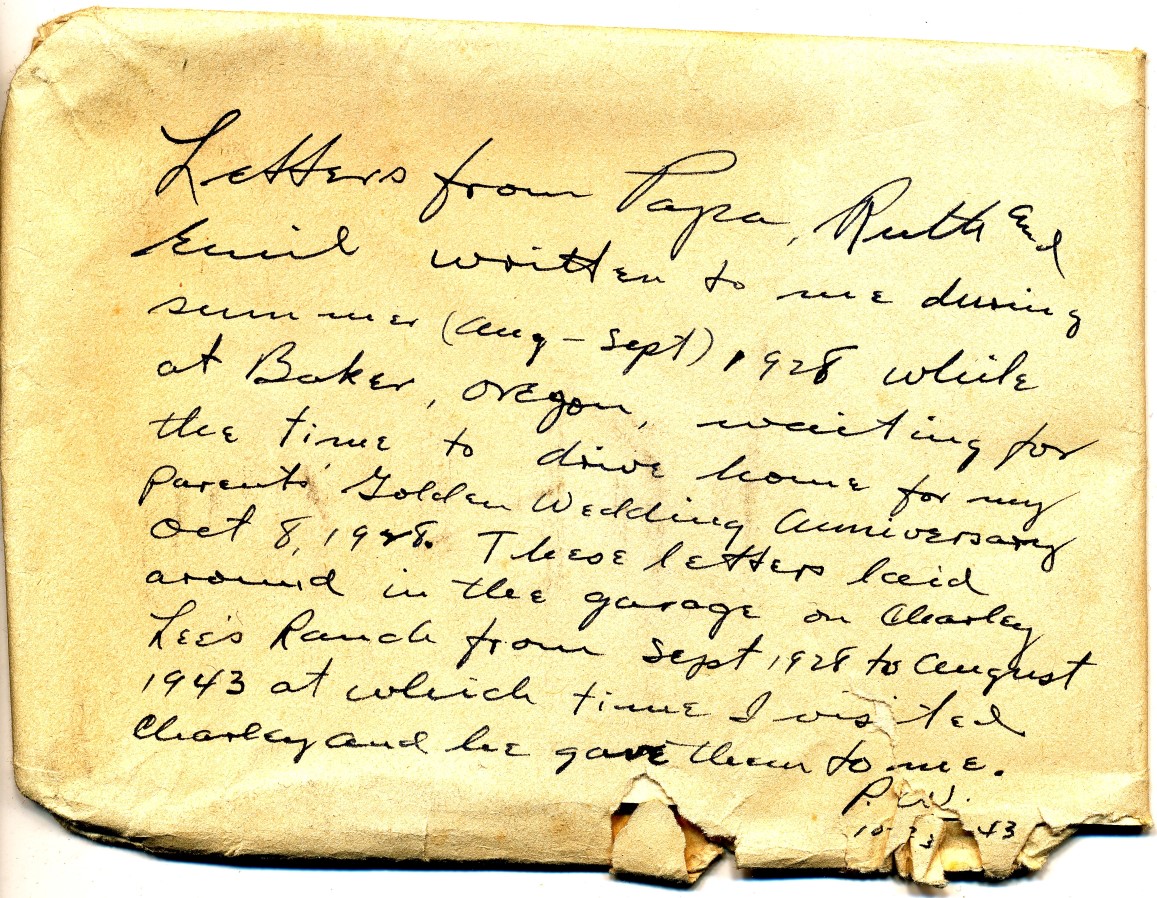 Letters from Papa, Ruth and
Emil written to me during
summer (Aug – Sept) 1928 while
at Baker, Oregon, waiting for
the time to drive home for my
parents' Golden Wedding Anniversary
Oct 8, 1928. These letters laid
around in the garage on Charley
Lee's Ranch from Sept 1928 to August
1943 at which time I visited
Charley and he gave them to me.
P. W.
10 43